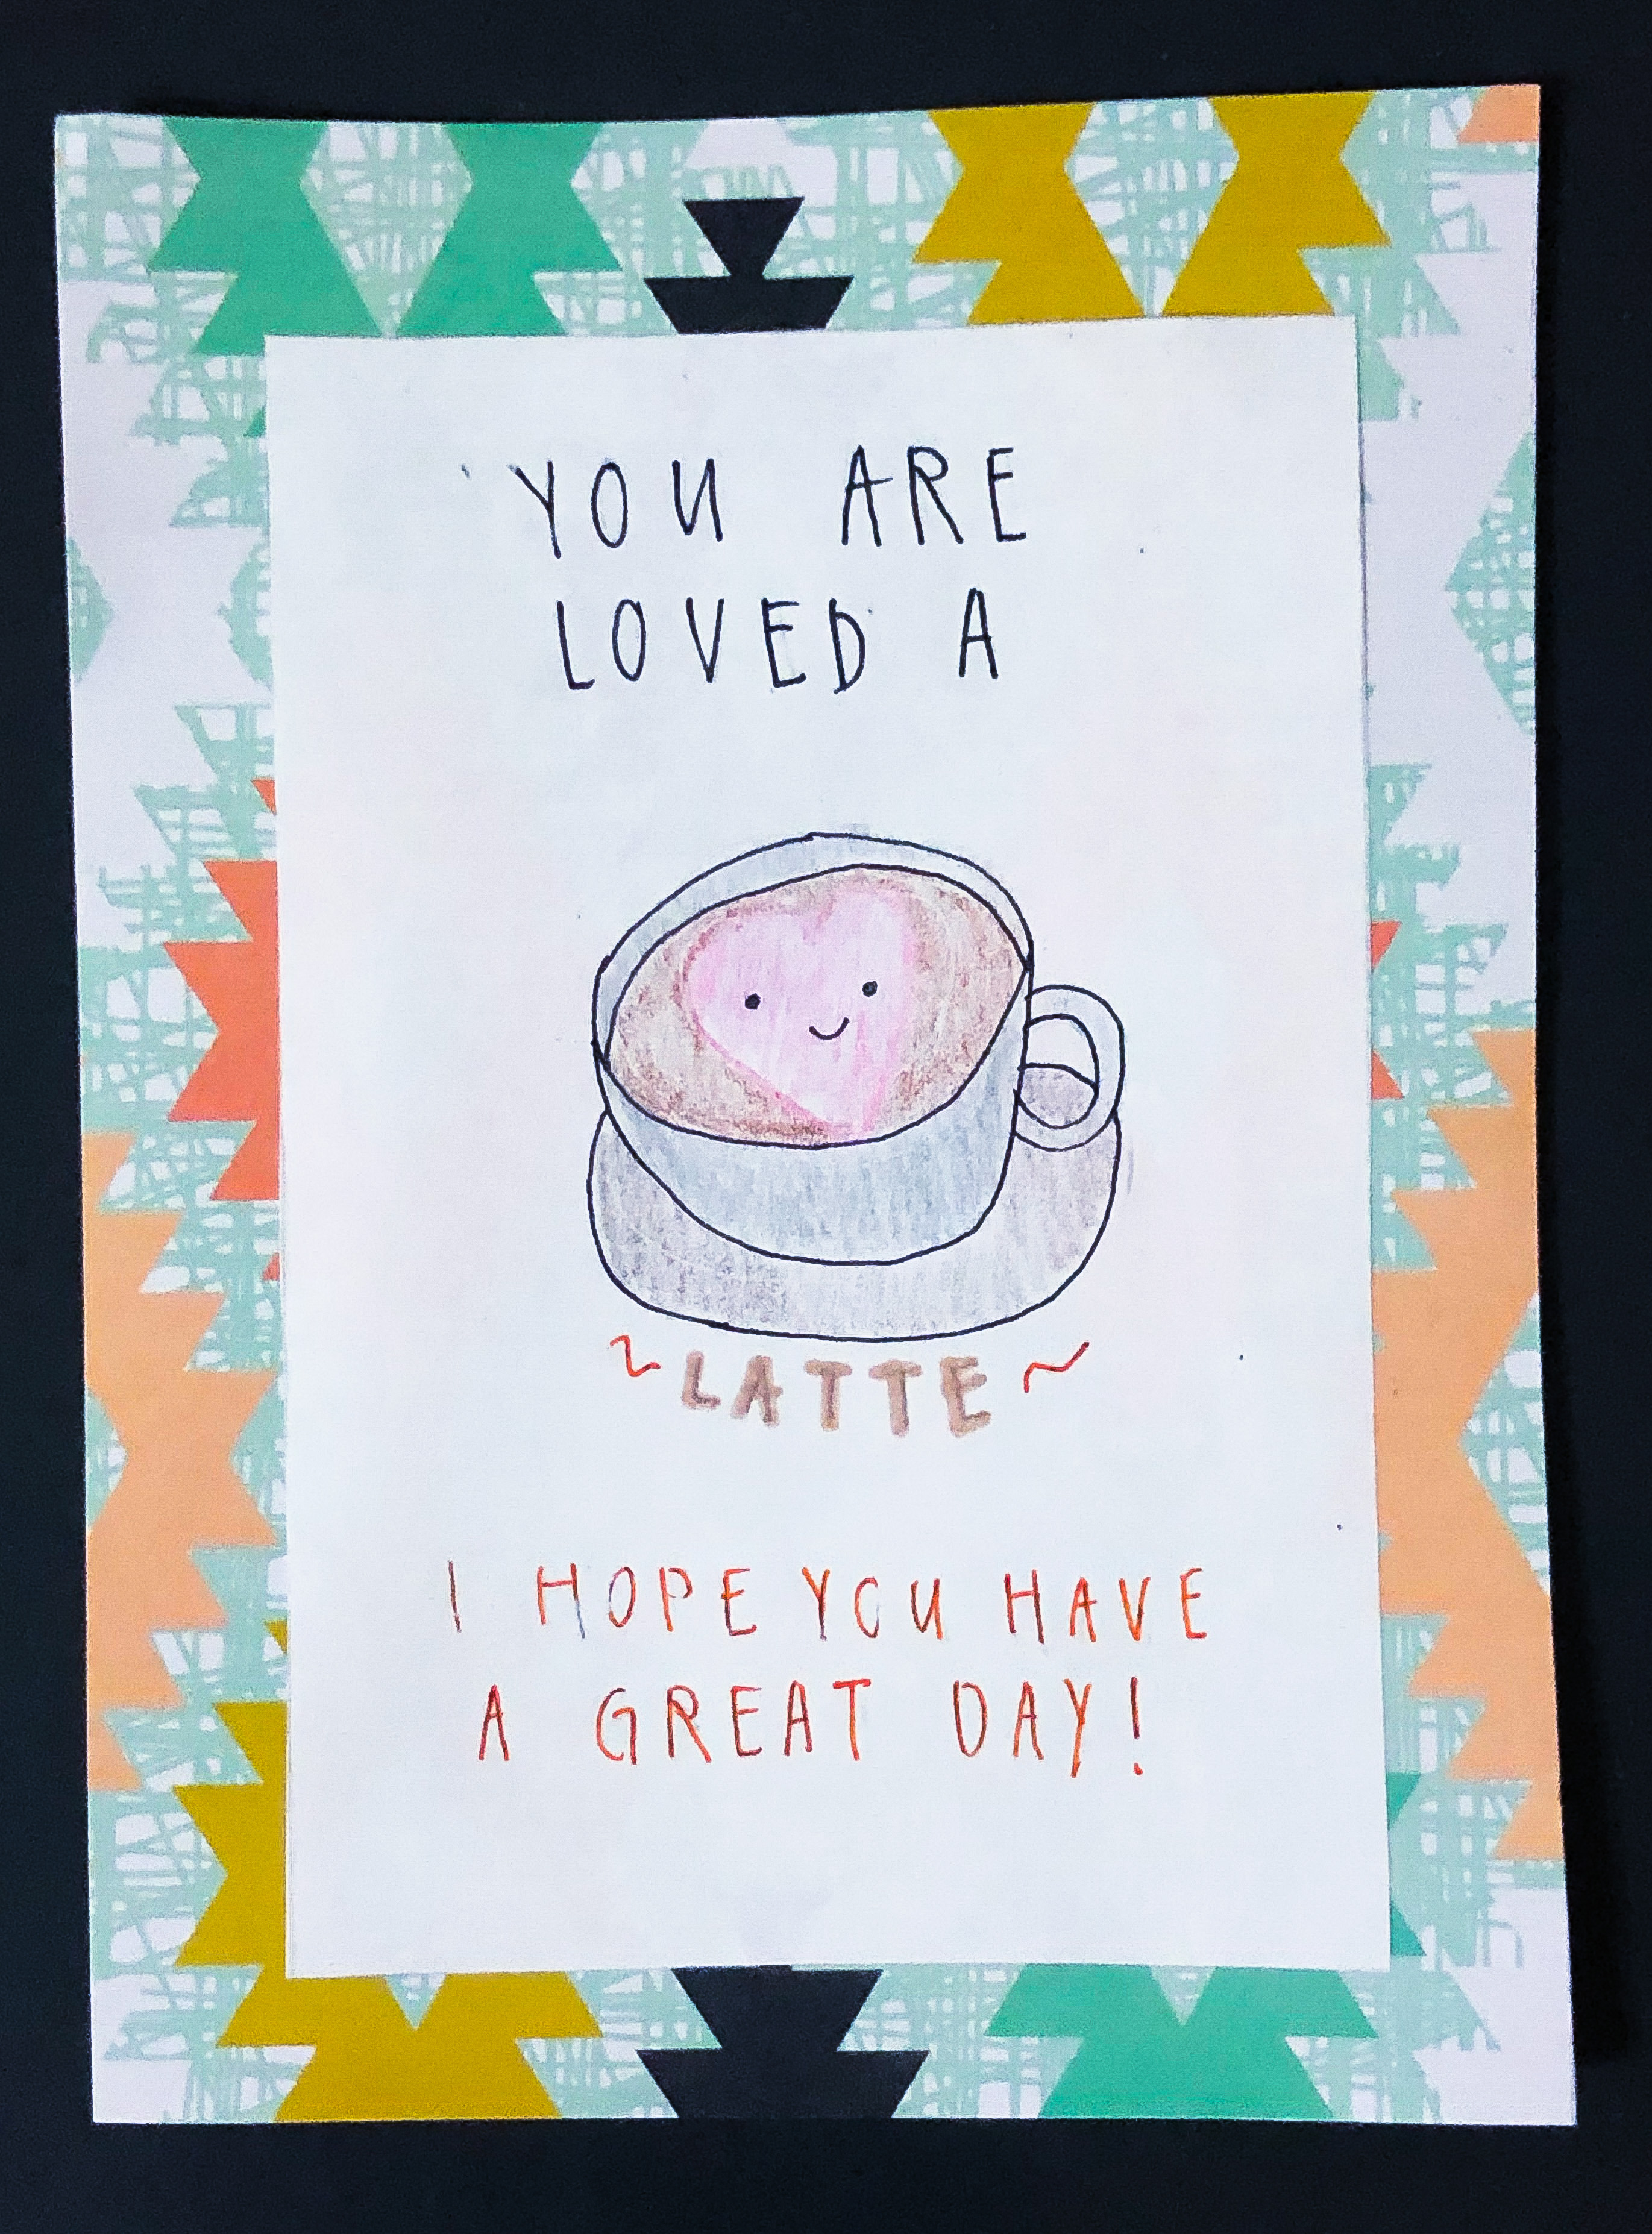 YOU ARE
LOVED A
~LATTE~
I HOPE YOU HAVE
A GREAT DAY!